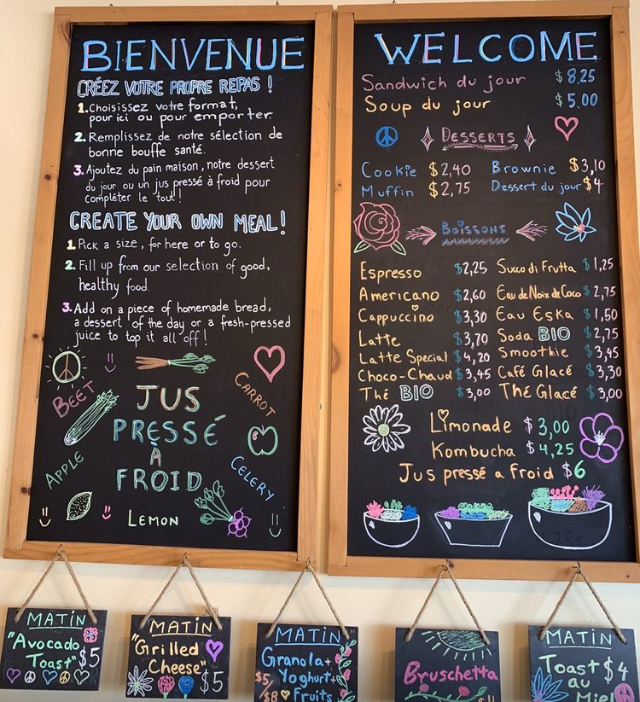 BIENVENUE
CRÉEZ VOTRE PROPRE REPAS !
1. Choisissez votre format,
pour ici ou pour emporter
2. Remplissez de notre sélection de
bonne bouffe santé.
3. Ajoutez du pain maison, notre dessert
du jour ou un jus pressé à froid pour
compléter le tout!
CREATE YOUR OWN MEAL!
1. Pick a size, for here or to go.
2. Fill up from our selection of good,
healthy food.
3. Add on a piece of homemade bread,
a dessert of the day or a fresh-pressed
juice to top it all off!
BEET
CARROT
JUS
PRESSÉ
À
FROID
APPLE
CELERY
LEMON
WELCOME
Sandwich du jour $8.25
Soup du jour $5.00
DESSERTS
Cookie $2,40 Brownie $3,10
Muffin $2,75 Dessert du jour $4
Boissons
Espresso $2,25 Succo di Frutta $1,25
Americano $2,60 Eau de Noix de Coco $2,75
Cappuccino $3,30 Eau Eska $1,50
Latte $3,70 Soda BIO $2,75
Latte Special $4,20 Smoothie $3,45
Choco-Chaud $3,45 Café Glacé $3,30
Thé BIO $3,00 Thé Glacé $3,00
Limonade $3,00
Kombucha $4,25
Jus pressé a froid $6
MATIN
"Avocado
Toast" $5
MATIN
"Grilled
Cheese" $5
MATIN
Granola+
$5 Yoghurt+
$8 Fruits
Bruschetta
MATIN
Toast $4
au
Miel